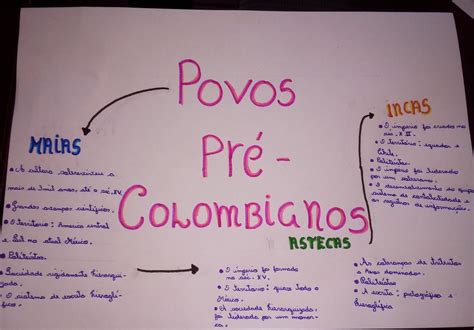 POVOS
PRÉ-
COLOMBIANOS
MAIAS
• A cultura sobreviveu a
mais de 2 mil anos, até o séc. XV.
• Grandes avanços científicos.
• O território: América central
e Sul no atual México.
• Politeístas.
• Sociedade rigidamente hierarqui-
zada.
• O sistema de escrita hieroglí-
fica.
ASTECAS
• O império foi formado
no séc. XV.
• O território: quase todo o
México.
• A sociedade hierarquizada
foi liderada por um monar-
ca.
• As cobranças de tributos
a Povos dominados.
• Politeístas
• A escrita: pictográfica e
hieroglífica
INCAS
• O império foi criado no
séc. XII.
• O território: equador a
Chile.
• Politeístas.
• O império foi liderado
por um soberano.
• O desenvolvimento de um
sistema de contabilidade e
registros de informações.